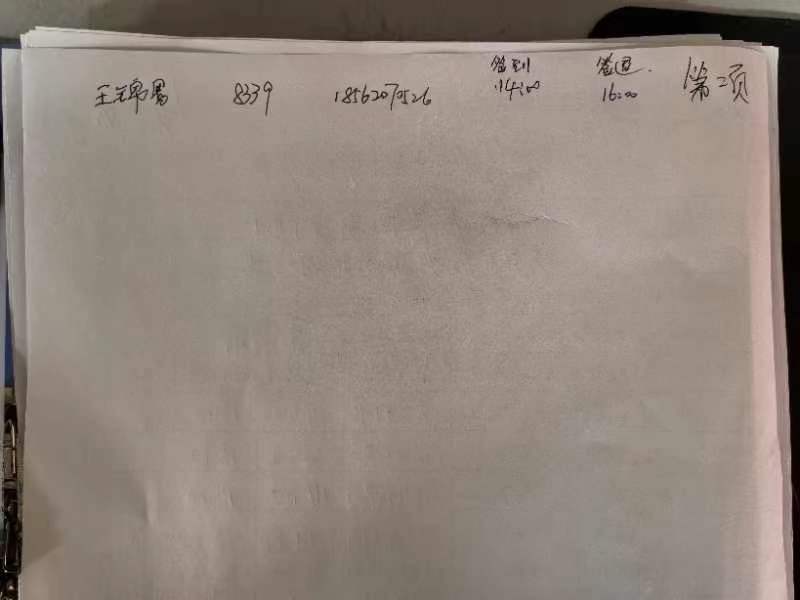 签到 签退. 第二页
王锦 8339 18562070526 14:00 16:00